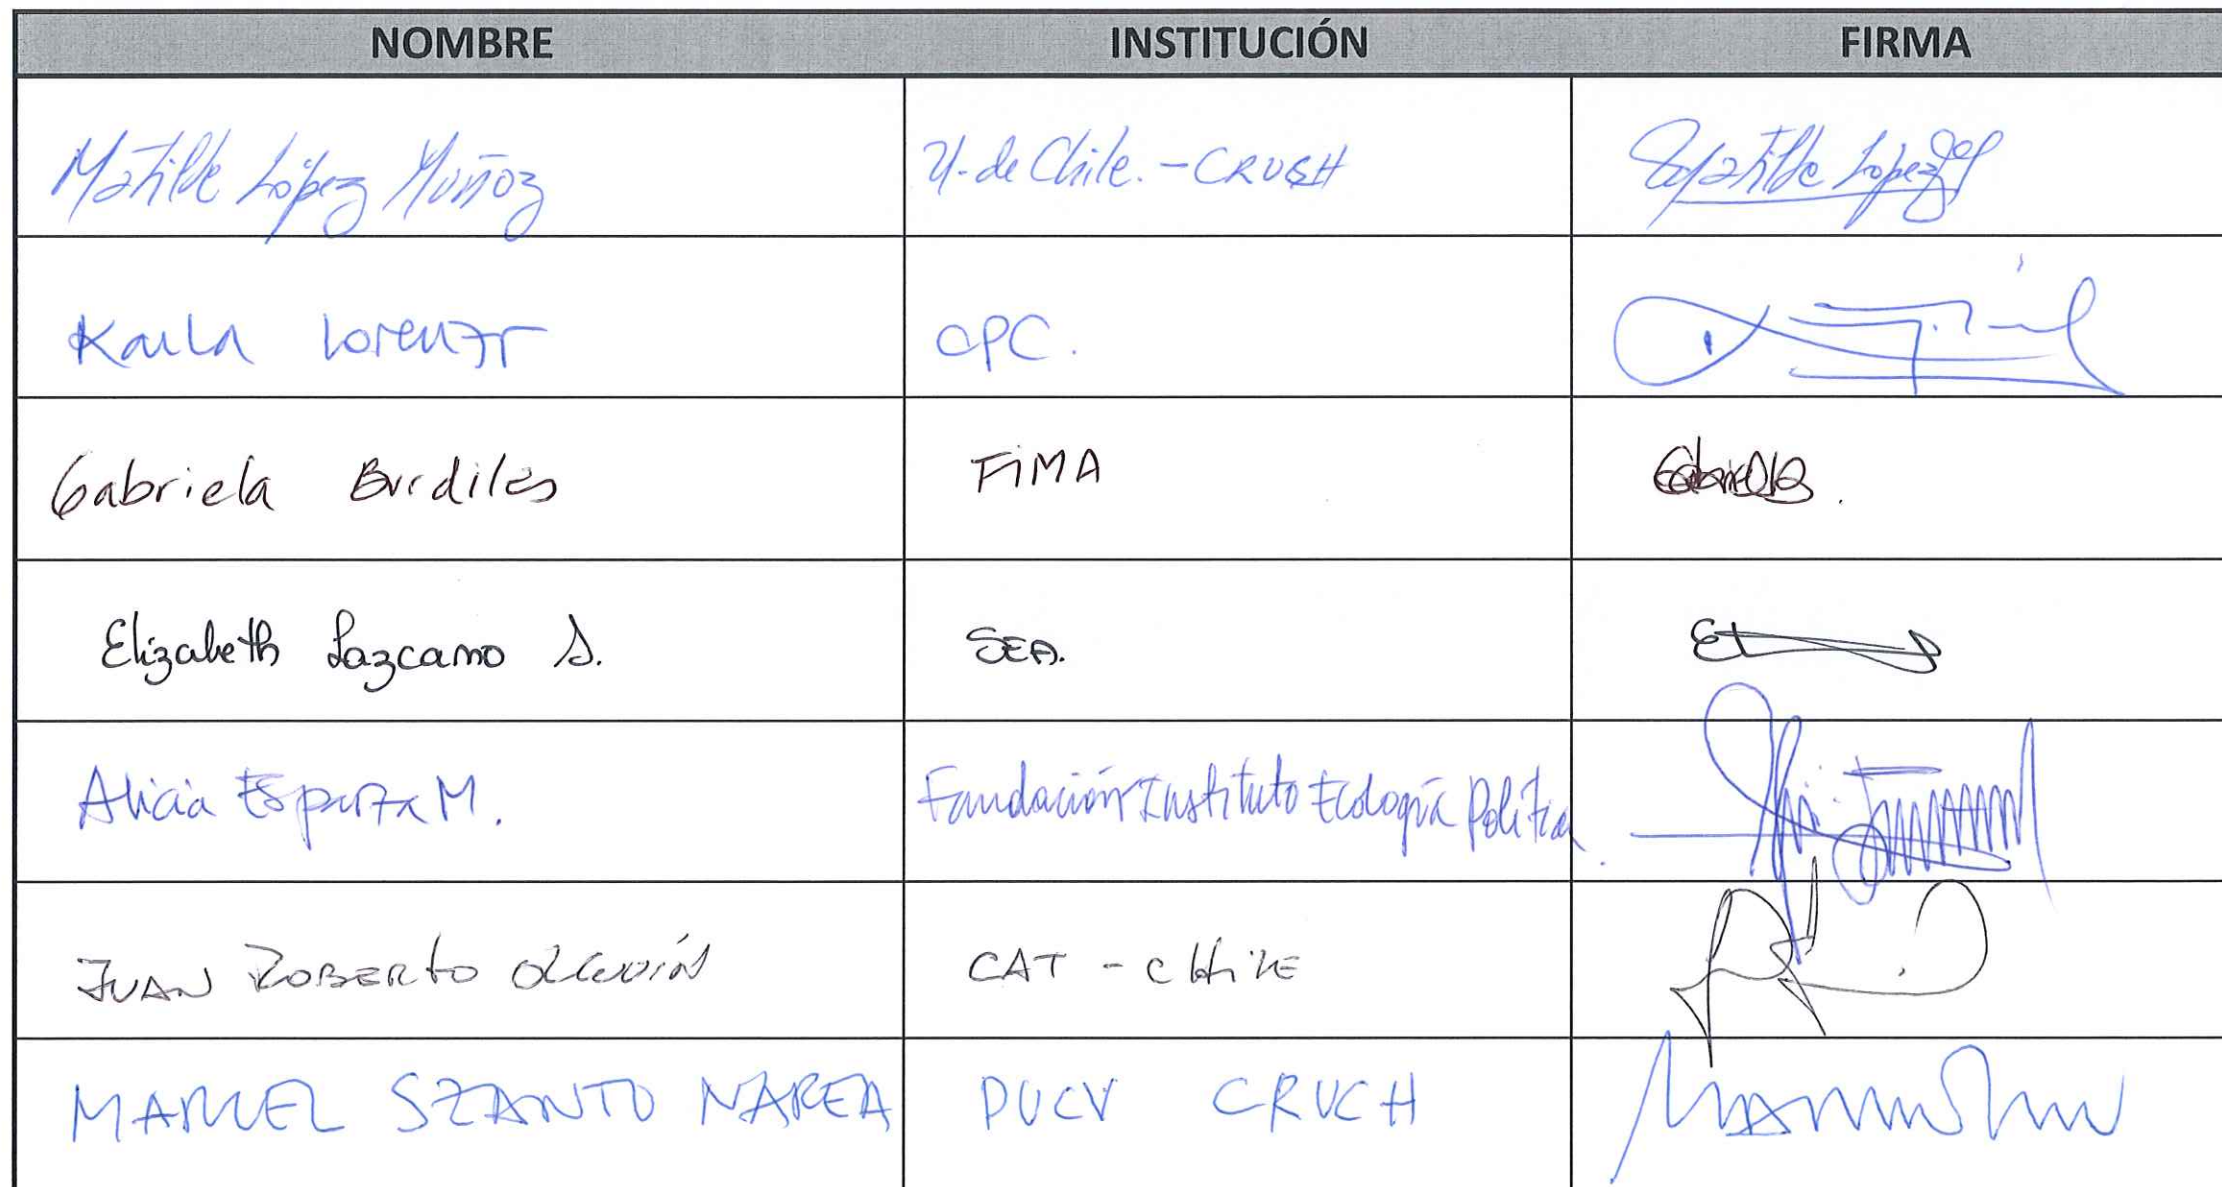 NOMBRE INSTITUCIÓN FIRMA
Matilde López Muñoz U. de Chile. - CRUSH Matilde Lopez
Karla Lorenzo CPC.
Gabriela Burdiles FiMA Gabriela
Elizabeth Lazcano S. SEA.
Alicia Esparza M. Fundación Instituto Ecología Política.
JUAN ROBERTO CAT - CHILE
MARCEL SZANTO NAREA PUCV CRUCH